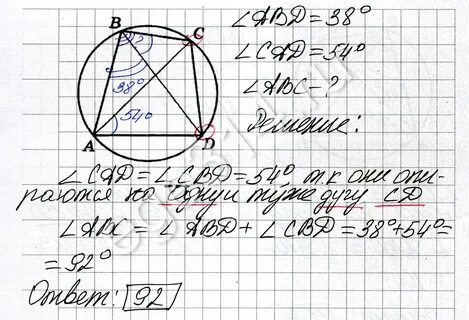 B C
38°
54°
A D
∠ABD = 38°
∠CAD = 54°
∠ABC - ?
Решение:
∠CAD = ∠CBD = 54° т.к они опи-
раются на одну и туже дугу CD
∠ABC = ∠ABD + ∠CBD = 38° + 54° =
= 92°
Ответ: 92